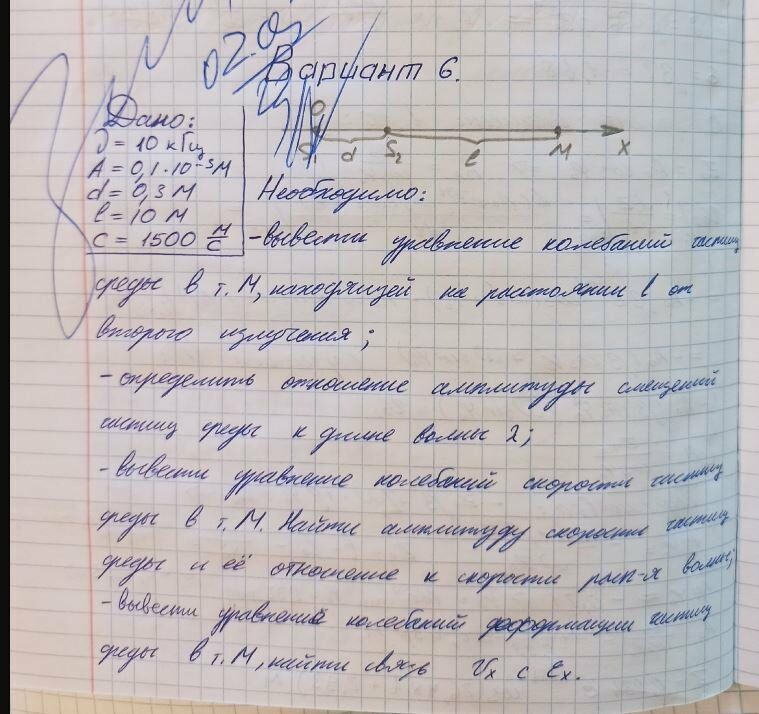 02.03
Вариант 6.
Дано:
ν = 10 кГц
A = 0,1·10⁻³м
d = 0,3 м
l = 10 м
c = 1500 м/с
O
S₁ d S₂ l M X
Необходимо:
-вывести уравнение колебаний частиц
среды в т. М, находящей на расстоянии l от
второго излучения;
-определить отношение амплитуды смещений
частиц среды к длине волны λ;
-вывести уравнение колебаний скорости частиц
среды в т. М. Найти амплитуду скорости частиц
среды и её отношение к скорости расп-я волны;
-вывести уравнений колебаний деформации частиц
среды в т. М, найти связь Vₓ с Ɛₓ.